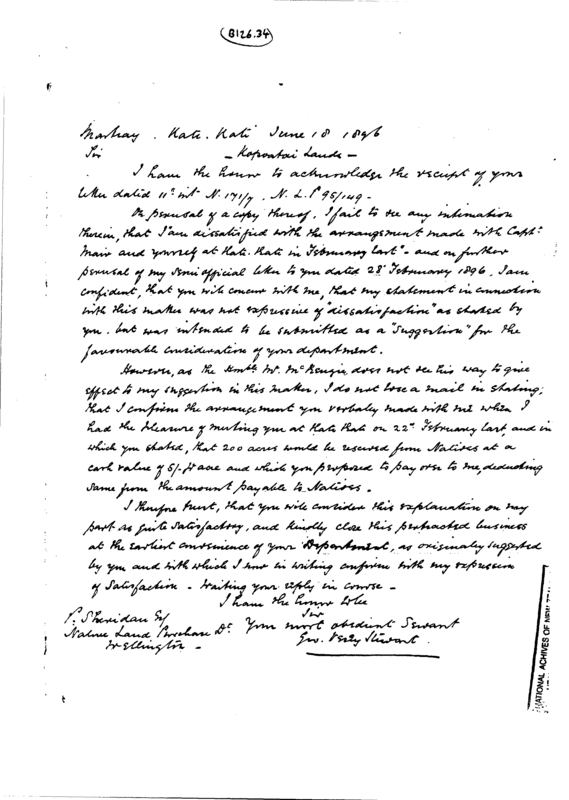 B126.34
Martray . Kati-Kati June 18 1896
Sir - Kopoatai Lands -
I have the honor to acknowledge the receipt of your
letter dated 11th inst N. 171/7. N. L. P 95/149 -
On perusal of a copy thereof, I fail to see any intimation
therein, that I am dissatisfied with the arrangement made with Captn
Mair and yourself at Kati-Kati in February last - and on further
perusal of my semi official letter to you dated 28th February 1896. I am
confident, that you will concur with me, that my statement in connection
with this matter was not expressive of "dissatisfaction" as stated by
you. but was intended to be submitted as a "Suggestion" for the
favourable consideration of your department.
However, as the Honble Mr. McKenzie does not see his way to give
effect to my suggestion in this matter, I do not lose a mail in stating,
that I confirm the arrangement you verbaly made with me when I
had the pleasure of meeting you at Kati Kati on 22nd February last, and in
which you stated, that 200 acres would be secured from Natives at a
cash value of 5/- acre and which you proposed to pay over to me, deducting
same from the amount payable to Natives -
I therefore trust, that you will consider this explanation on my
part as quite satisfactory, and kindly close this protracted business
at the earliest convenience of your Department, as originally suggested
by you and with which I now in writing confirm with my expression
of satisfaction - Waiting your reply in course -
I have the honor to be
Sir
Your most obedient Servant
Geo. Vesey Stewart.
P. Sheridan Esq
Native Land Purchase Dt
Wellington -
NATIONAL ACHIVES OF NEW